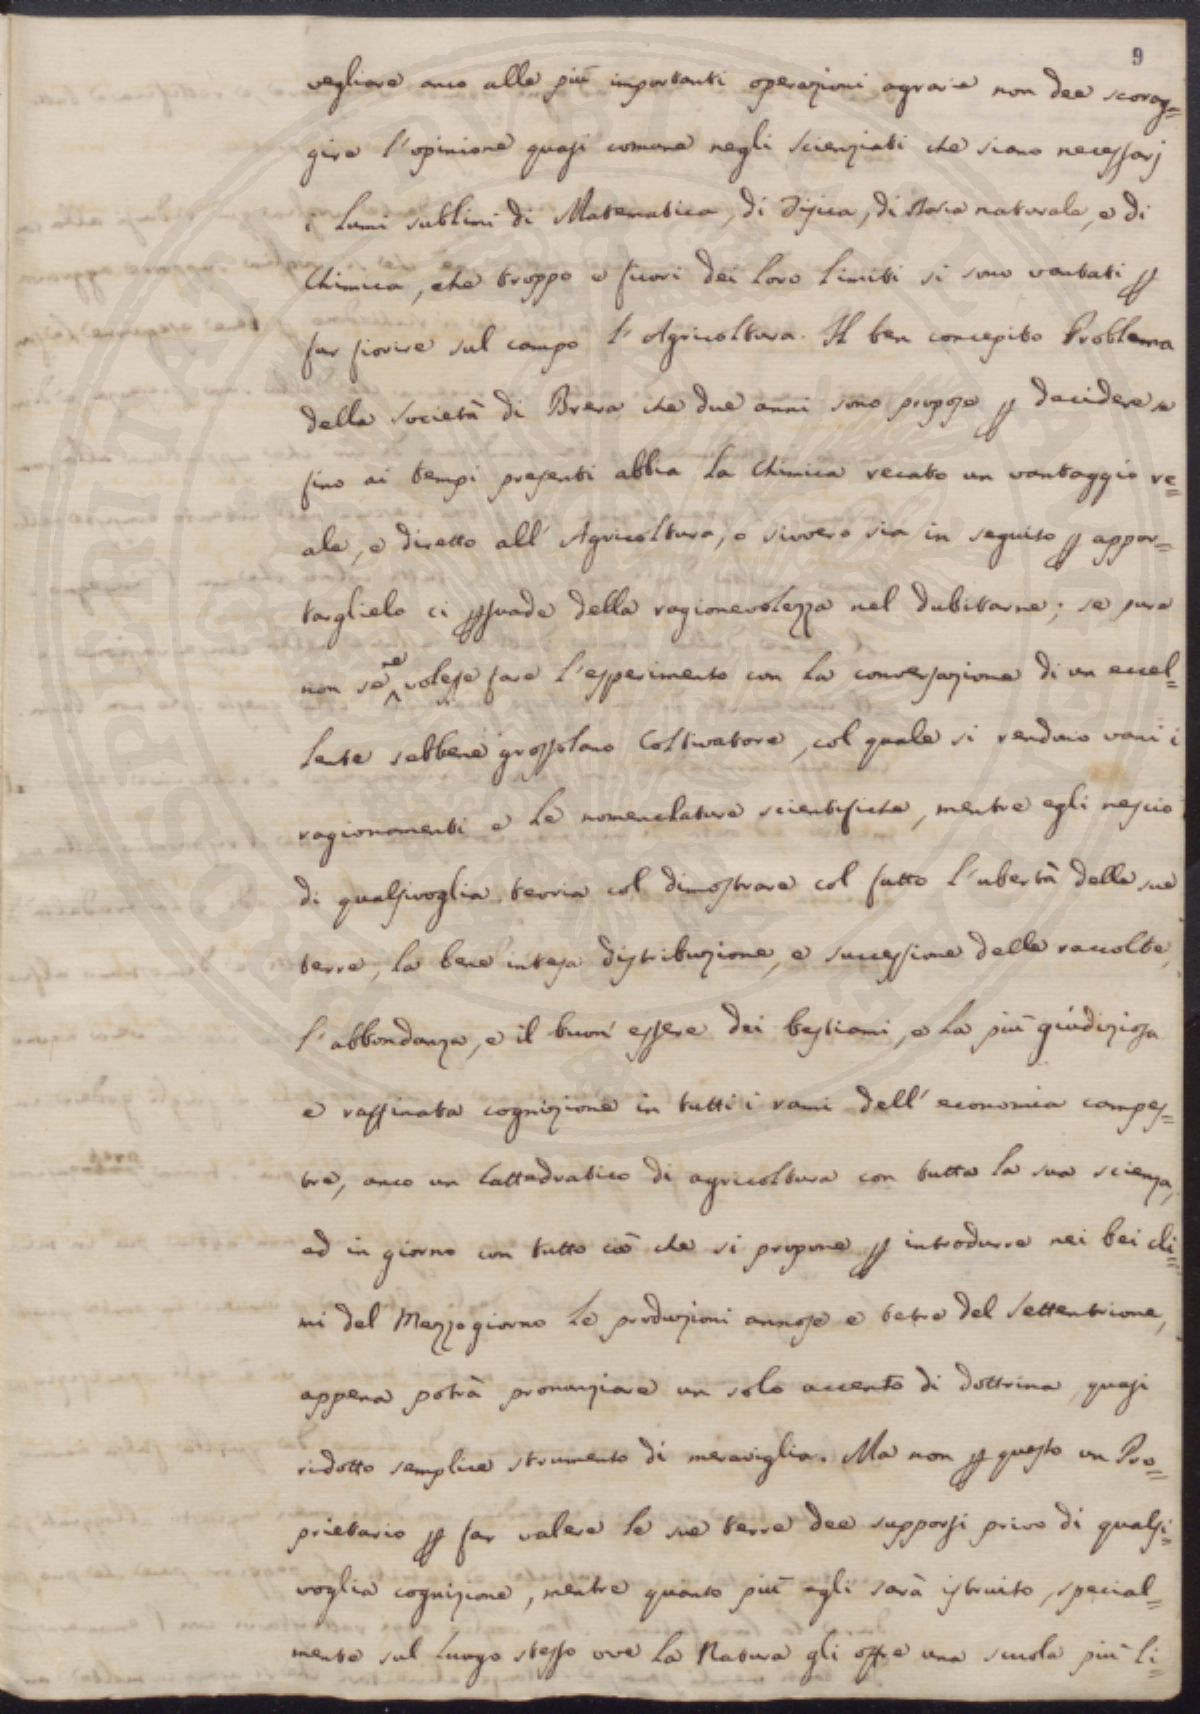 9
vegliare anco alle più importanti operazioni agrarie non dee scorag=
gire l'opinione quasi comune negli scienziati che siano necessarj
i lumi sublimi di Matematica, di Fisica, di storia naturale, e di
Chimica, che troppo e fuori dei loro limiti si sono vantati p
far fiorire sul campo l'Agricoltura. Il ben concepito Problema
della Società di Brera che due anni sono propose p decidere se
fino ai tempi presenti abbia la Chimica recato un vantaggio re=
ale, e diretto all'Agricoltura, o sivvero sia in seguito p appor=
targlielo ci psuade della ragionevolezza nel dubitarne; se pure
non se ne volesse fare l'esperimento con la conversazione di un eccel=
lente sebbene grossolano Coltivatore, col quale si rendono vani i
ragionamenti e le nomenclature scientifiche, mentre egli nescio
di qualsivoglia teoria col dimostrare col fatto l'ubertà delle sue
terre, la bene intesa distribuzione, e successione delle raccolte,
l'abbondanza, e il buon essere dei bestiami, e la più giudiziosa
e raffinata cognizione in tutti i rami dell'economia campes=
tre, anco un Cattedratico di agricoltura con tutta la sua scienza,
ed in giorno con tutto ciò che si propone p introdurre nei bei cli=
mi del Mezzogiorno le produzioni annose e tetre del Settentrione,
appena potrà pronunziare un solo accento di dottrina quasi
ridotto semplice strumento di meraviglia. Ma non p questo un Pro=
prietario p far valere le sue terre dee supporsi privo di qualsi=
voglia cognizione, mentre quanto più egli sarà istruito, special=
mente sul luogo stesso ove la Natura gli offre una scuola più li=